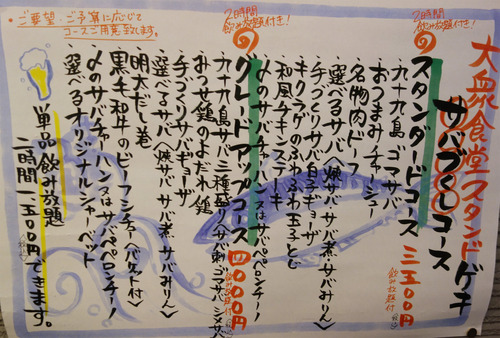 大衆食堂スタンドゲキ
サバづくしコース
2時間飲み放題付き!
のスタンダードコース 三五〇〇円
飲み放題付(税込)
九十九島ゴマサバ
おつまみチャーシュー
名物肉ドーフ
選べるサバ〈燻サバ・サバ煮・サバみりん〉
手づくりサバ白子ギョーザ
キクラゲのふわふわ玉子とじ
和風チキンステーキ
〆のサバチャーハン又はサバペペロンチーノ
2時間飲み放題付き!
のグレードアップコース 四〇〇〇円
飲み放題付(税込)
九十九島サバ三種盛り〈サバ刺・ゴマサバ・シメサバ〉
みつせ鶏のよだれ鶏
手づくりサバギョーザ
選べるサバ〈燻サバ・サバ煮・サバみりん〉
明太だし巻
黒毛和牛のビーフシチュー〈バケット付〉
〆のサバチャーハン又はサバペペロンチーノ
選べるオリジナルシャーベット
・ご要望・ご予算に応じて
コースご用意致します。
単品飲み放題
二時間一五〇〇円(税込)できます。